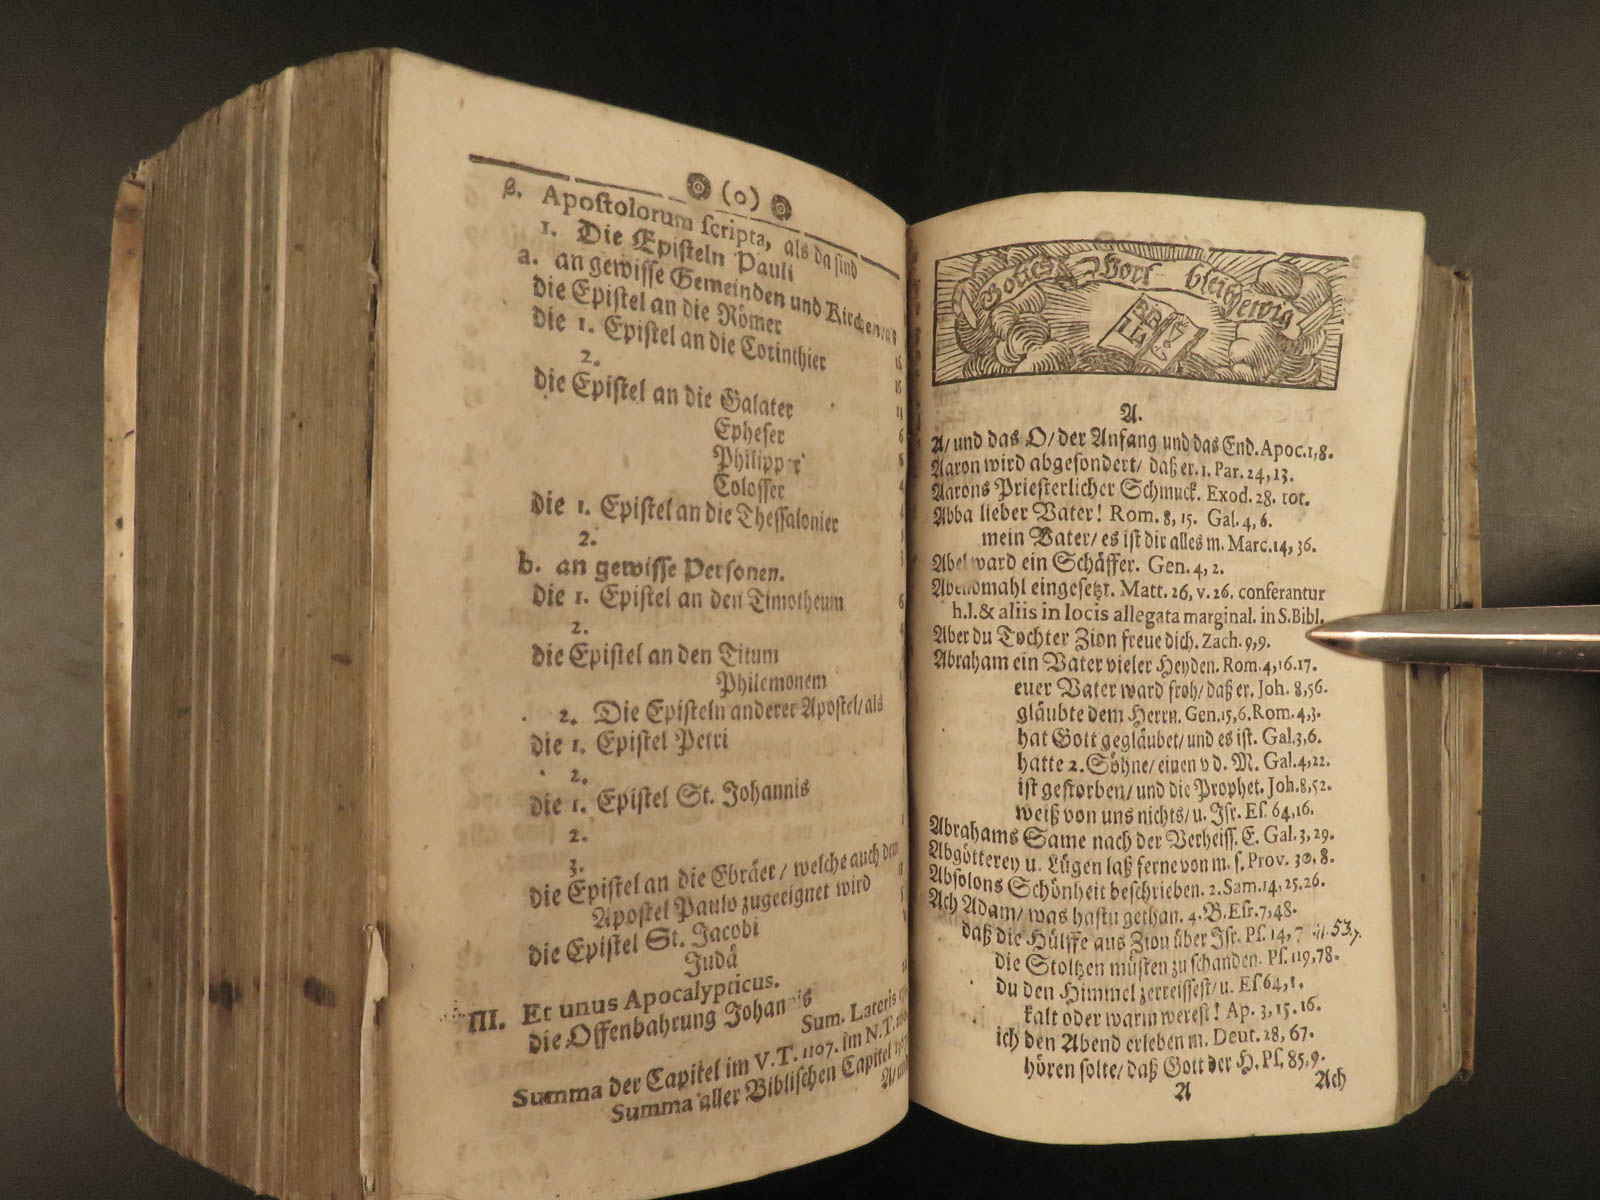 (o)
β. Apostolorum scripta, als da sind
1. Die Episteln Pauli
a. an gewisse Gemeinden und Kirchen/ als
die Epistel an die Römer
16
die 1. Epistel an die Corinthier
2.
die Epistel an die Galater
6
Epheser
Philipper
4
Colosser
die 1. Epistel an die Thessalonier
2.
b. an gewisse Personen.
die 1. Epistel an den Timotheum
6
2.
4
die Epistel an den Titum
Philemonem
2. Die Episteln anderer Apostel/ als
die 1. Epistel Petri
2.
die 1. Epistel St. Johannis
2.
3.
die Epistel an die Ebräer/ welche auch dem
Apostel Paulo zugeeignet wird
die Epistel St. Jacobi
Judä
III. Et unus Apocalypticus.
die Offenbahrung Johannis
Sum. Lateris
Summa der Capitel im V.T. 1107. im N.T.
Summa aller Biblischen Capitel
A/ und
Gottes Wort bleibt ewig
BIBLIA
A.
A/ und das O/ der Anfang und das End. Apoc. 1, 8.
Aaron wird abgesondert/ daß er. 1. Par. 24, 13.
Aarons Priesterlicher Schmuck. Exod. 28. tot.
Abba lieber Vater! Rom. 8, 15. Gal. 4, 6.
mein Vater/ es ist dir alles m. Marc. 14, 36.
Abel ward ein Schäffer. Gen. 4, 2.
Abendmahl eingesetzt. Matt. 26, v. 26. conferantur
h. l. & aliis in locis allegata marginal. in S. Bibl.
Aber du Tochter Zion freue dich. Zach. 9, 9.
Abraham ein Vater vieler Heyden. Rom. 4, 16. 17.
euer Vater ward froh/ daß er. Joh. 8, 56.
gläubte dem Herrn. Gen. 15, 6. Rom. 4, 3.
hat Gott gegläubet/ und es ist. Gal. 3, 6.
hatte 2. Söhne/ einen v d. M. Gal. 4, 22.
ist gestorben/ und die Prophet. Joh. 8, 52.
weiß von uns nichts/ u. Isr. Es. 64, 16.
Abrahams Same nach der Verheiss. E. Gal. 3, 29.
Abgötterey u. Lügen laß ferne von m. s. Prov. 30, 8.
Absolons Schönheit beschrieben. 2. Sam. 14, 25. 26.
Ach Adam/ was hastu gethan. 4. B. Esr. 7, 48.
daß die Hülffe aus Zion über Isr. Ps. 14, 7 53.7.
die Stoltzen müsten zu schanden. Ps. 119, 78.
du den Himmel zerreissest/ u. Es 64, 1.
kalt oder warm werest! Ap. 3, 15. 16.
ich den Abend erleben m. Deut. 28, 67.
hören solte/ daß Gott der H. Ps. 85, 9.
A
Ach